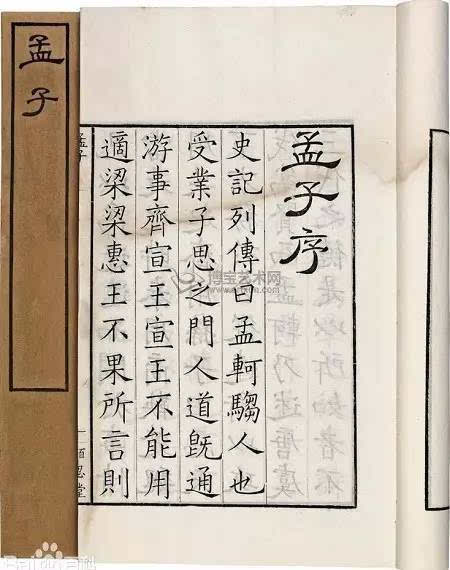 孟子序
史記列傳曰孟軻騶人也
受業子思之門人道旣通
游事齊宣王宣王不能用
適梁梁惠王不果所言則
孟子
博宝艺术网
Bai百科